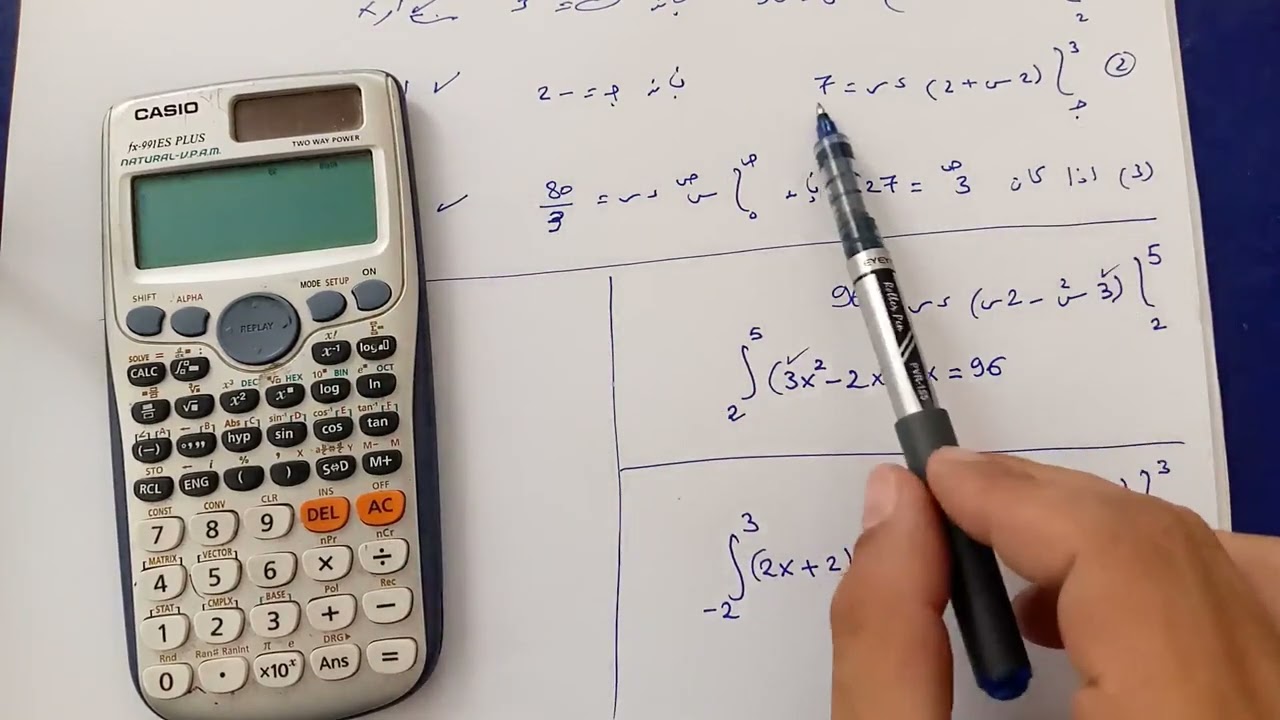 CASIO
fx-991ES PLUS
NATURAL-V.P.A.M.
TWO WAY POWER
SHIFT ALPHA MODE SETUP ON
REPLAY
SOLVE = : x!
CALC x⁻¹ log
x³ DEC HEX 10ˣ BIN eˣ OCT
√ x² xⁿ log ln
Abs sin⁻¹ cos⁻¹ tan⁻¹
(−) hyp sin cos tan
STO M− M
RCL ENG ( ) S⇔D M+
CONST CONV CLR INS OFF
7 8 9 DEL AC
MATRIX VECTOR nPr nCr
4 5 6 × ÷
STAT CMPLX BASE Pol Rec
1 2 3 + −
Rnd Ran# RanInt π e DRG▶
0 . ×10ˣ Ans =
② ∫ 3 (2س + 2) ءس = 7 فإن 2− = م
(3) اذا كان 3 = 27 ∫ 0 س ءس = 80/3
∫ 5 2 (3س² − 2س) ءس
∫ 5 2 (3x² − 2x x = 96
∫ 3 −2 (2x + 2)
3